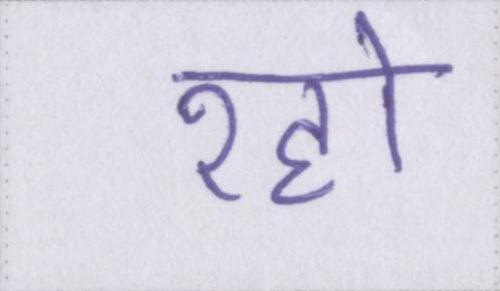 रहो